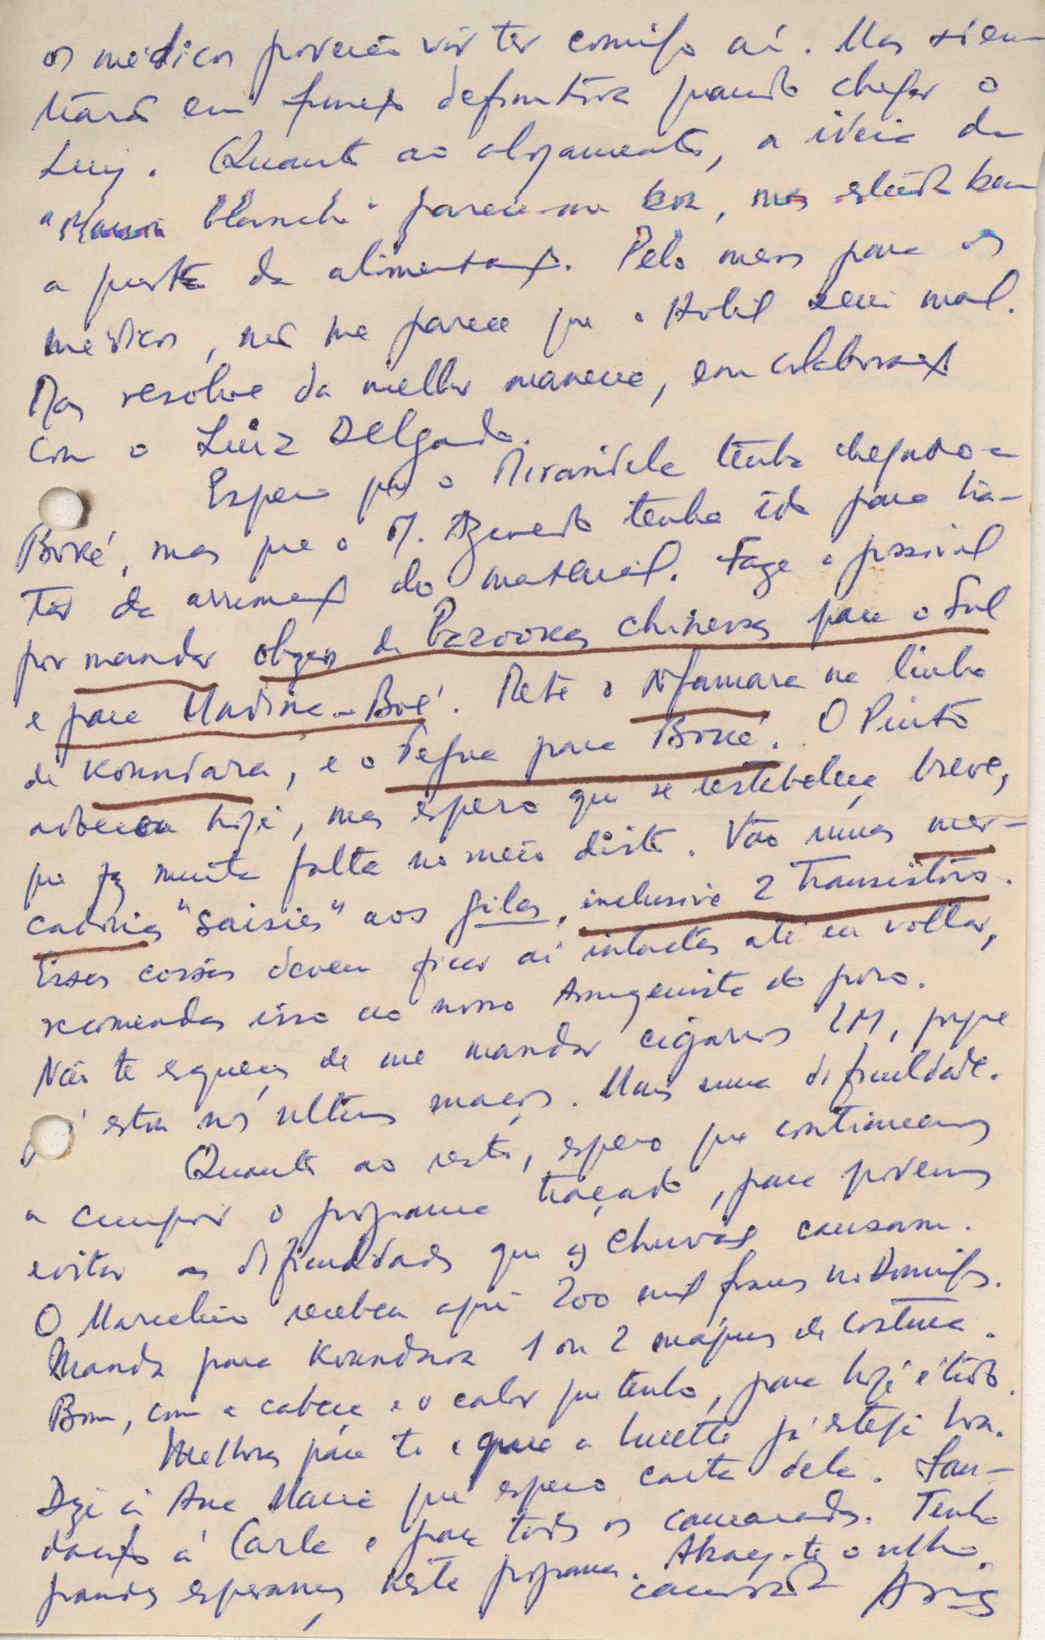 os médicos poderão vir ter comigo aí. Mas só en-
trará em função definitiva quando chegar o
Luiz. Quanto ao alojamento, a ideia da
"Maison Blanche" parece-me boa, mas estuda bem
a questão da alimentação. Pelo menos para os
médicos, não me parece que o Hotel seria mal.
Mas resolve da melhor maneira, em colaboração
com o Luiz Delgado.
Espero que o Mirandela tenha chegado a
Boké, mas que o M. Azevedo tenha ido para tra-
tar da arrumação do material. Faze o possível
por mandar obuses de Bazookas chinesas para o Sul
e para Madina-Boé. Mete o N'famara na linha
de Koundara, e o Pefna para Boké. O Pinto
adoeceu hoje, mas espero que se restabeleça breve,
que faz muita falta no meio disto. Vão umas mer-
cadorias "saisies" aos gilas, inclusivé 2 transistors.
Essas coisas devem ficar aí intactas até eu voltar,
recomendas isso ao nosso Armazenista do povo.
Não te esqueças de me mandar cigarros LM, porque
já estou nos últimos maços. Mais uma dificuldade.
Quanto ao resto, espero que continuemos
a cumprir o programa traçado, para podermos
evitar as dificuldades que as chuvas causarem.
O Marcelino recebeu aqui 200 mil francos no Domingo.
Manda para Koundara 1 ou 2 máquinas de costura.
Bom, com a cabeça e o calor que tenho, para hoje é tudo.
Melhoras para ti e que a Lucette já esteja boa.
Dize à Ana Maria que espero carta dela. Sau-
dações à Carla e para todos os camaradas. Tenho
grandes esperanças neste programa. Abraça-te o velho
camarada